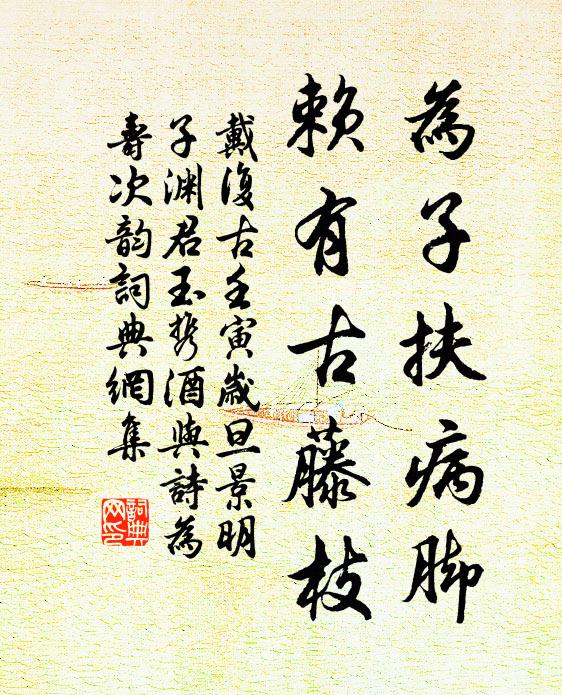 為子扶病脚
賴有古藤枝
戴復古壬寅歲旦景明
子淵君玉携酒與詩為
壽次韵詞典網集
詞典網印